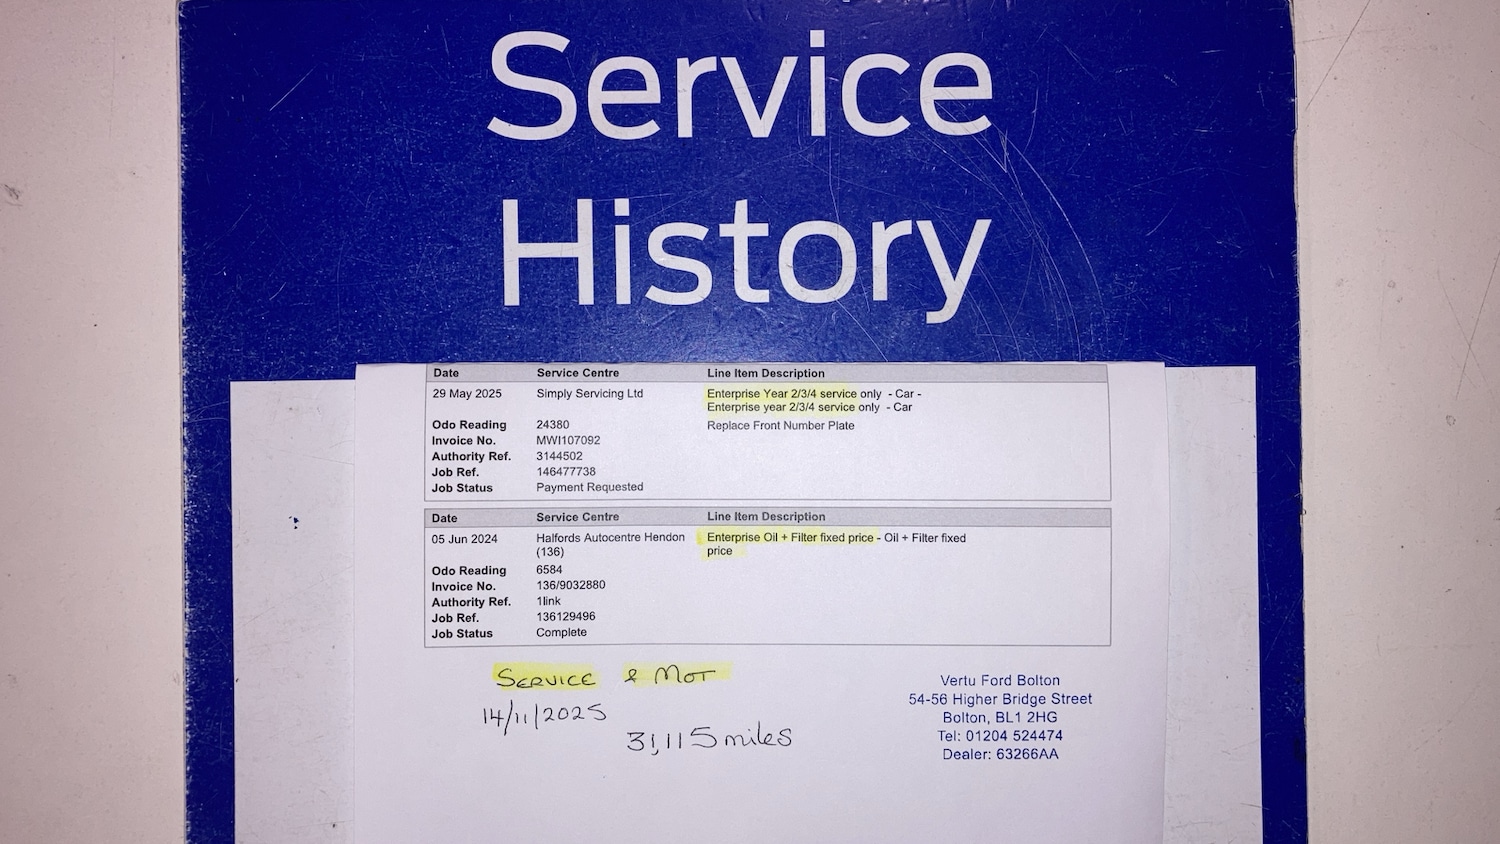 Service
History
Date Service Centre Line Item Description
29 May 2025 Simply Servicing Ltd Enterprise Year 2/3/4 service only - Car -
Enterprise year 2/3/4 service only - Car
Odo Reading 24380 Replace Front Number Plate
Invoice No. MWI107092
Authority Ref. 3144502
Job Ref. 146477738
Job Status Payment Requested
Date Service Centre Line Item Description
05 Jun 2024 Halfords Autocentre Hendon Enterprise Oil + Filter fixed price - Oil + Filter fixed
(136) price
Odo Reading 6584
Invoice No. 136/9032880
Authority Ref. 1link
Job Ref. 136129496
Job Status Complete
SERVICE & MOT
14/11/2025
31,115 miles
Vertu Ford Bolton
54-56 Higher Bridge Street
Bolton, BL1 2HG
Tel: 01204 524474
Dealer: 63266AA